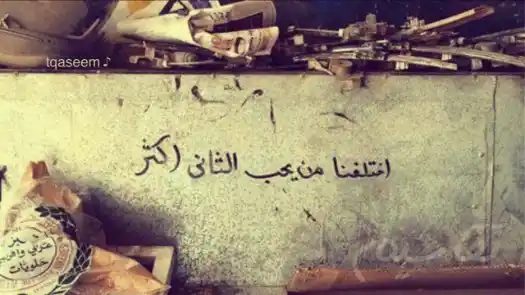 tqaseem ♪
اختلفنا من يحب الثاني أكثر
خبز
عربي وافرنجي
حلويات